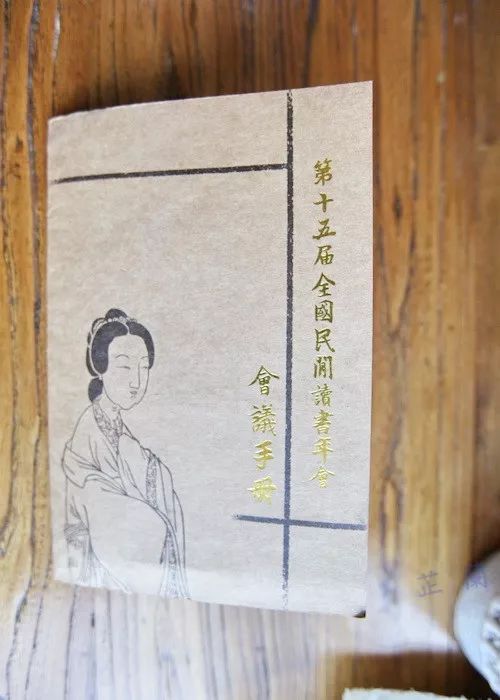 第十五届全國民間讀書年會
會議手冊
芷蘭